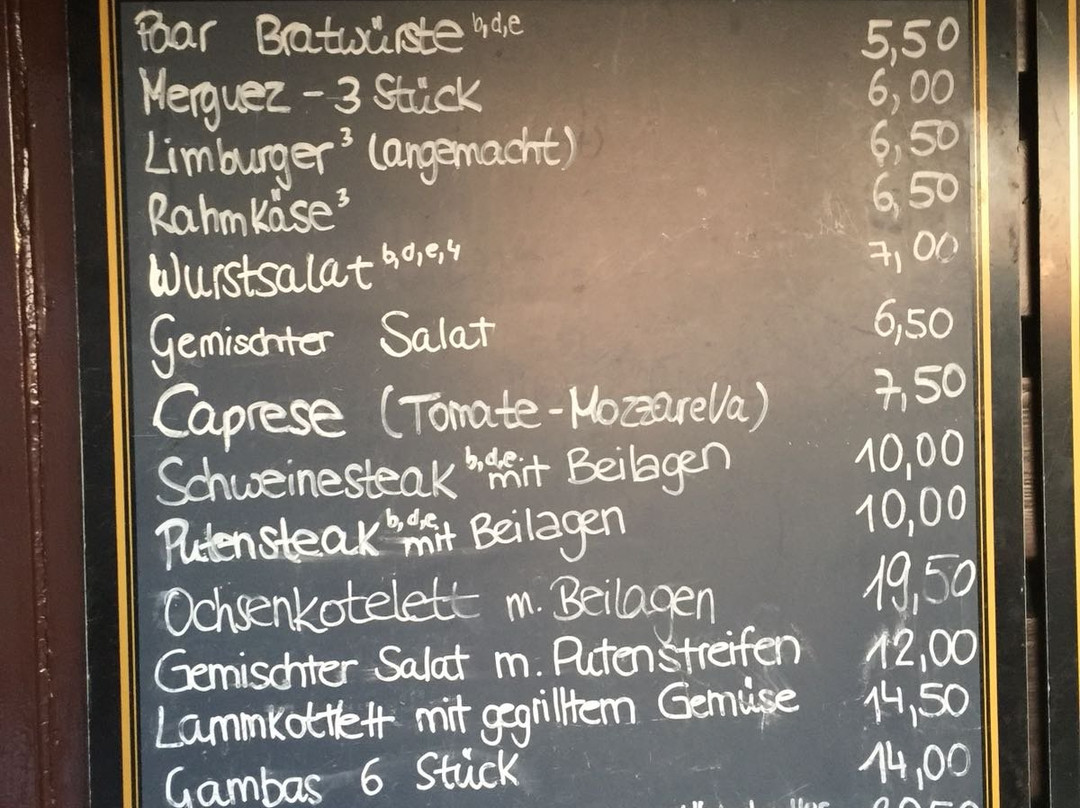 Paar Bratwürste b,d,e 5,50
Merguez - 3 Stück 6,00
Limburger 3 (angemacht) 6,50
Rahmkäse 3 6,50
Wurstsalat b,d,e,4 7,00
Gemischter Salat 6,50
Caprese (Tomate-Mozzarella) 7,50
Schweinesteak b,d,e mit Beilagen 10,00
Putensteak b,d,e mit Beilagen 10,00
Ochsenkotelett m. Beilagen 19,50
Gemischter Salat m. Putenstreifen 12,00
Lammkottlett mit gegrilltem Gemüse 14,50
Gambas 6 Stück 14,00